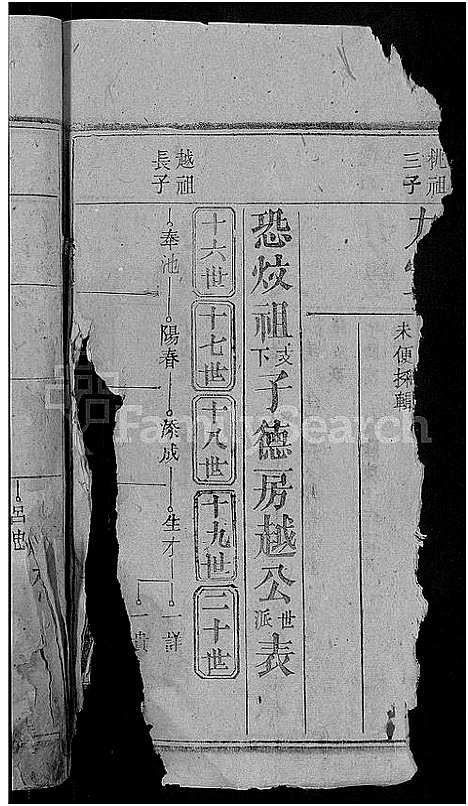 桃祖
三子
未便採輯
恐烄祖支下子德房越公世派表
十六世
十七世
十八世
十九世
二十世
越祖
長子
奉池
陽春
滎成
生才
一詳
一貴
FamilySearch